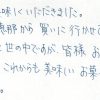 味しくいただきました。
那から買いに行かせ
世の中ですが、皆様お
これからも美味しいお菓